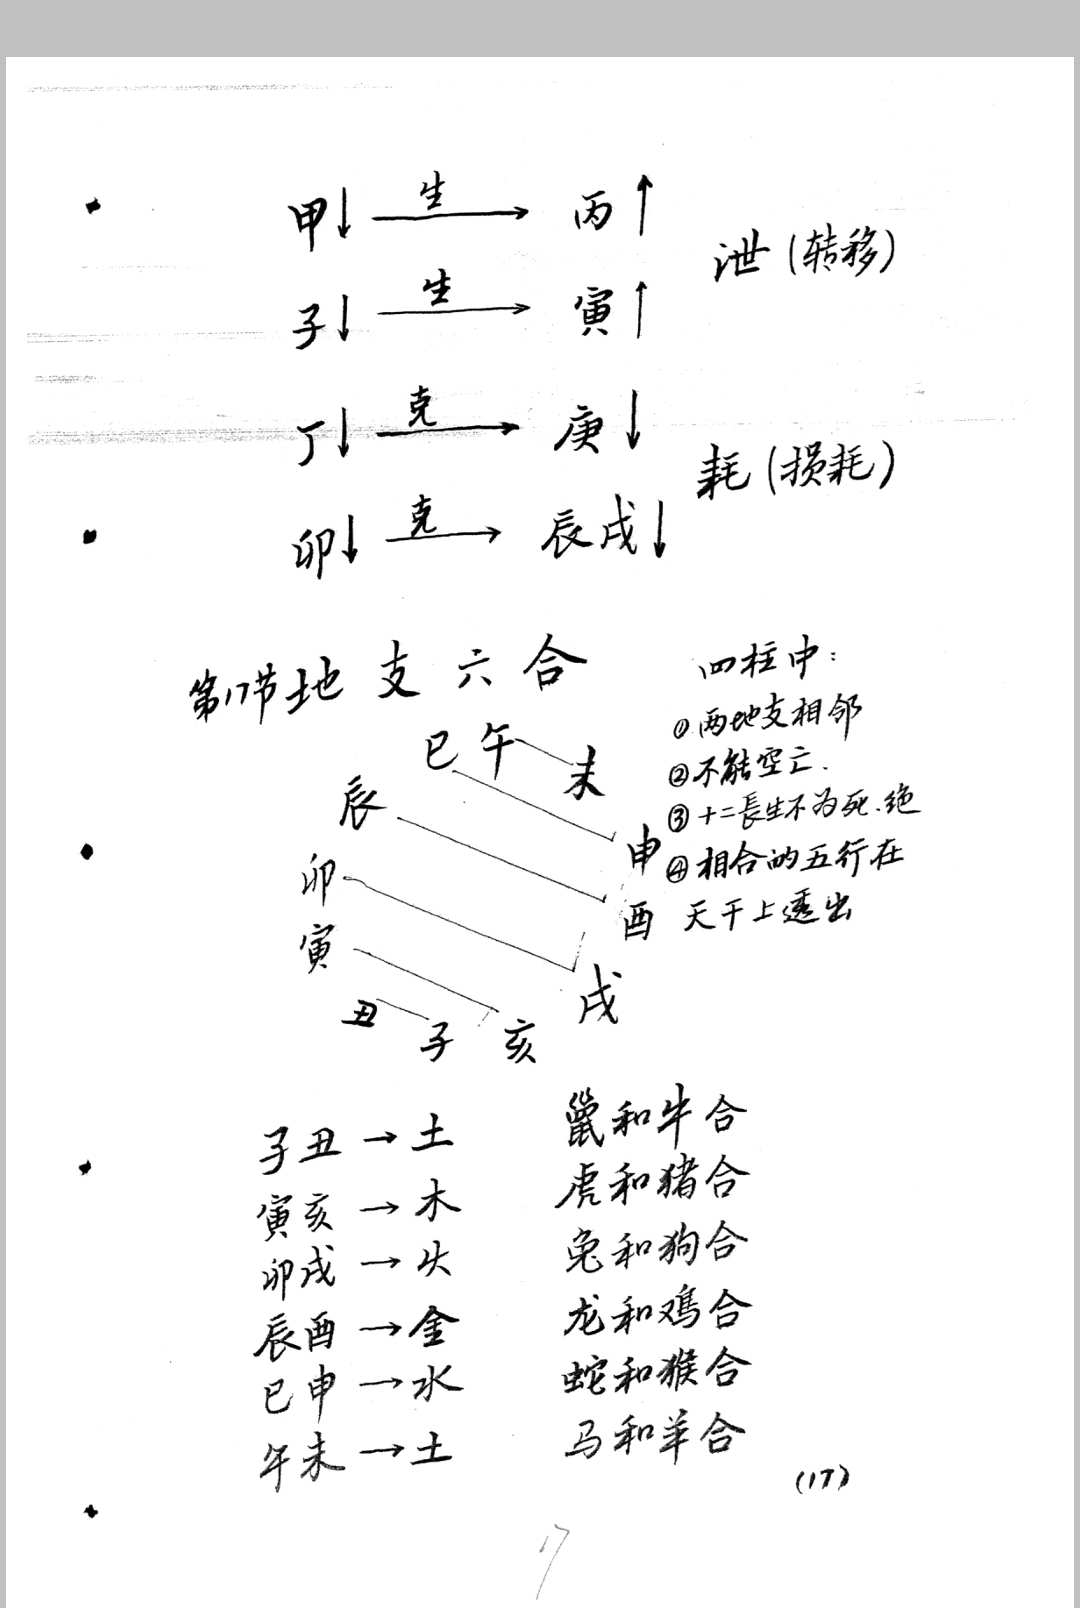 甲↓ 生→ 丙↑
泄(转移)
子↓ 生→ 寅↑
丁↓ 克→ 庚↓
耗(损耗)
卯↓ 克→ 辰戌↓
第17节地支六合
四柱中:
①两地支相邻
②不能空亡.
③十二長生不为死.绝
④相合的五行在
天干上透出
巳 午
未
辰
申
卯
酉
寅
戌
丑
子
亥
子丑→土 鼠和牛合
寅亥→木 虎和猪合
卯戌→火 兔和狗合
辰酉→金 龙和鸡合
巳申→水 蛇和猴合
午未→土 马和羊合
(17)
17